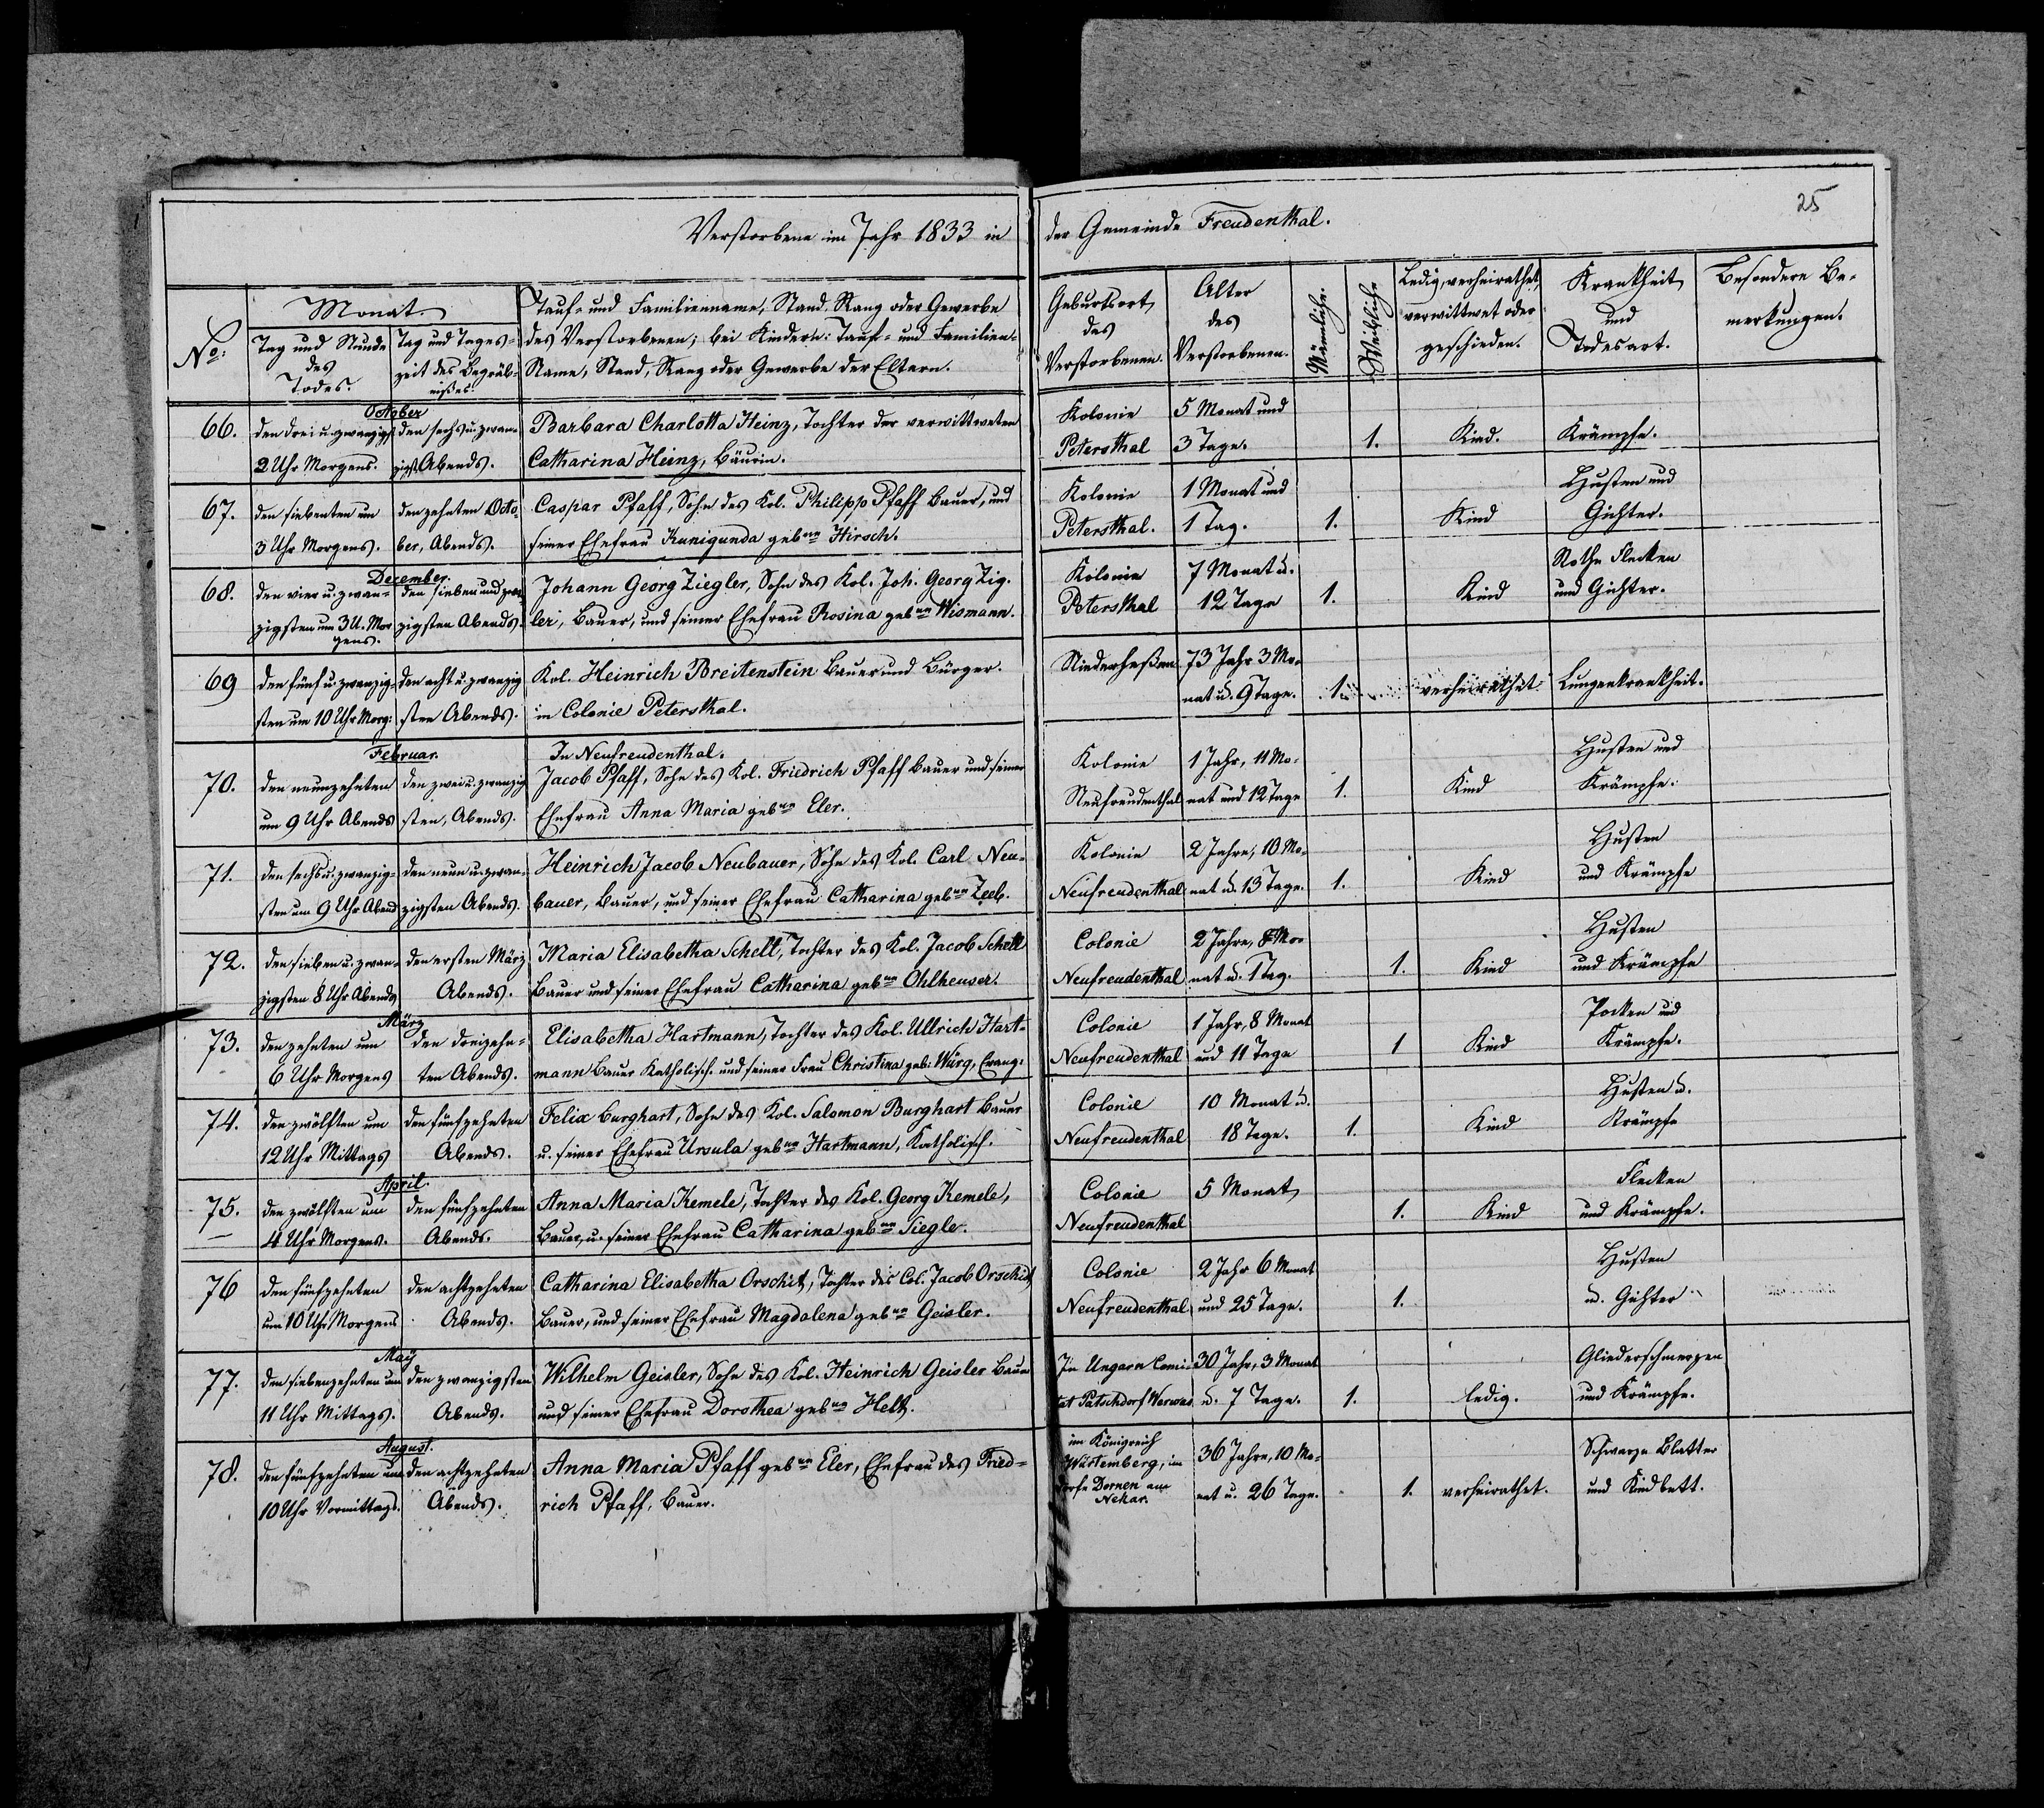 Verstorbene im Jahr 1833 in der Gemeinde Freudenthal.
25
No:
Monat.
Tag und Stunde des Todes.
Tag und Tageszeit des Begräbnißes.
Tauf- und Familienname, Stand, Rang oder Gewerbe
des Verstorbenen; bei Kindern: Tauf- und Familien-
Name, Stand, Rang oder Gewerbe der Eltern.
Geburtsort des Verstorbenen.
Alter des Verstorbenen.
Männliche.
Weibliche
Ledig, verheirathet, verwittwet oder geschieden.
Krankheit und Todesart.
Besondere Bemerkungen.
October
66. den drei u. zwanzigst den sechs u. zwan- Barbara Charlotta Heinz, Tochter der verwittweten Kolonie 5 Monat und
2 Uhr Morgens. zigst Abends. Catharina Heinz, Bäurin. Petersthal 3 Tage. 1. Kind. Krämpfe.
67. den siebenten um den zehnten Octo- Caspar Pfaff, Sohn des Kol. Philipp Pfaff Bauer, und Kolonie 1 Monat und Husten und
3 Uhr Morgens. ber, Abends. seiner Ehefrau Kunigunda gebne Hirsch. Petersthal. 1 Tag. 1. Kind Gichter.
December
68. den vier u. zwan- den sieben und zwan- Johann Georg Ziegler, Sohn des Kol. Joh. Georg Zig- Kolonie 7 Monat u. Rothe Flecken
zigsten um 3 U. Mor- zigsten Abends. ler, Bauer, und seiner Ehefrau Rosina gebne Wismann. Petersthal 12 Tage 1. Kind und Gichter.
gens.
69 den fünf u. zwanzig- den acht u. zwanzig Kol. Heinrich Breitenstein Bauer und Bürger. Niederheßen 73 Jahr 3 Mo-
sten um 10 Uhr Morg: sten Abends. in Colonie Petersthal. nat u. 9 Tage. 1. verheirathet. Lungenkrankheit.
Februar. In Neufreudenthal.
70. den neunzehnten den zwei u. zwanzig Jacob Pfaff, Sohn des Kol. Friedrich Pfaff Bauer und seiner Kolonie 1 Jahr, 11 Mo- Husten und
um 9 Uhr Abends sten, Abends. Ehefrau Anna Maria gebne Eler. Neufreudenthal nat und 12 Tage 1. Kind Krämpfe.
71. den sechs u. zwanzig- den neun u. zwan- Heinrich Jacob Neubauer, Sohn des Kol. Carl Neu- Kolonie 2 Jahre, 10 Mo- Husten
sten um 9 Uhr Abend zigsten Abends. bauer, Bauer, und seiner Ehefrau Catharina gebne Zeeb. Neufreudenthal nat u. 13 Tage. 1. Kind und Krämpfe
72. den sieben u. zwan- den ersten März Maria Elisabetha Schell, Tochter des Kol. Jacob Schell Colonie 2 Jahre, 8 Mo- Husten
zigsten 8 Uhr Abends Abends. Bauer und seiner Ehefrau Catharina gebne Ohlheuser. Neufreudenthal nat u. 1 Tag. 1. Kind und Krämpfe
März
73. den zehnten um den dreizehn- Elisabetha Hartmann, Tochter des Kol. Ullrich Hart- Colonie 1 Jahr, 8 Monat Pocken und
6 Uhr Morgens ten Abends. mann Bauer Katholisch und seiner Frau Christina geb: Würg, Evang: Neufreudenthal und 11 Tage 1 Kind Krämpfe.
74. den zwölften um den fünfzehnten Felix Burghart, Sohn des Kol. Salomon Burghart Bauer Colonie 10 Monat u. Husten u.
12 Uhr Mittags Abends. u. seiner Ehefrau Ursula gebne Hartmann, Katholisch. Neufreudenthal 18 Tage. 1. Kind Krämpfe
April.
75. den zwölften um den fünfzehnten Anna Maria Kemele, Tochter des Kol. Georg Kemele, Colonie 5 Monat Flecken
4 Uhr Morgens. Abends. Bauer, u. seiner Ehefrau Catharina gebne Siegle. Neufreudenthal 1. Kind und Krämpfe.
76 den fünfzehnten den achtzehnten Catharina Elisabetha Orschit, Tochter des Col. Jacob Orschit Colonie 2 Jahr 6 Monat Husten
um 10 Uhr Morgens Abends. Bauer, und seiner Ehefrau Magdalena gebne Geisler. Neufreudenthal und 25 Tage. 1. u. Gichter
May
77. den siebenzehnten um den zwanzigsten Wilhelm Geisler, Sohn des Kol. Heinrich Geisler Bauer In Ungarn Comi- 30 Jahr, 3 Monat Gliederschmerzen
11 Uhr Mittags. Abends. und seiner Ehefrau Dorothea gebne Helt. tat Patschdorf Werwas u. 7 Tage. 1. ledig. und Krämpfe.
August.
78. den fünfzehnten um den achtzehnten Anna Maria Pfaff gebne Eler, Ehefrau des Fried- im Königreich Würtemberg, im 36 Jahre, 10 Mo- Schwarze Blatter
10 Uhr Vormittags. Abends. rich Pfaff, Bauer. Dorfe Dernen am Nekar. nat u. 26 Tage. 1. verheirathet. und Kindbett.